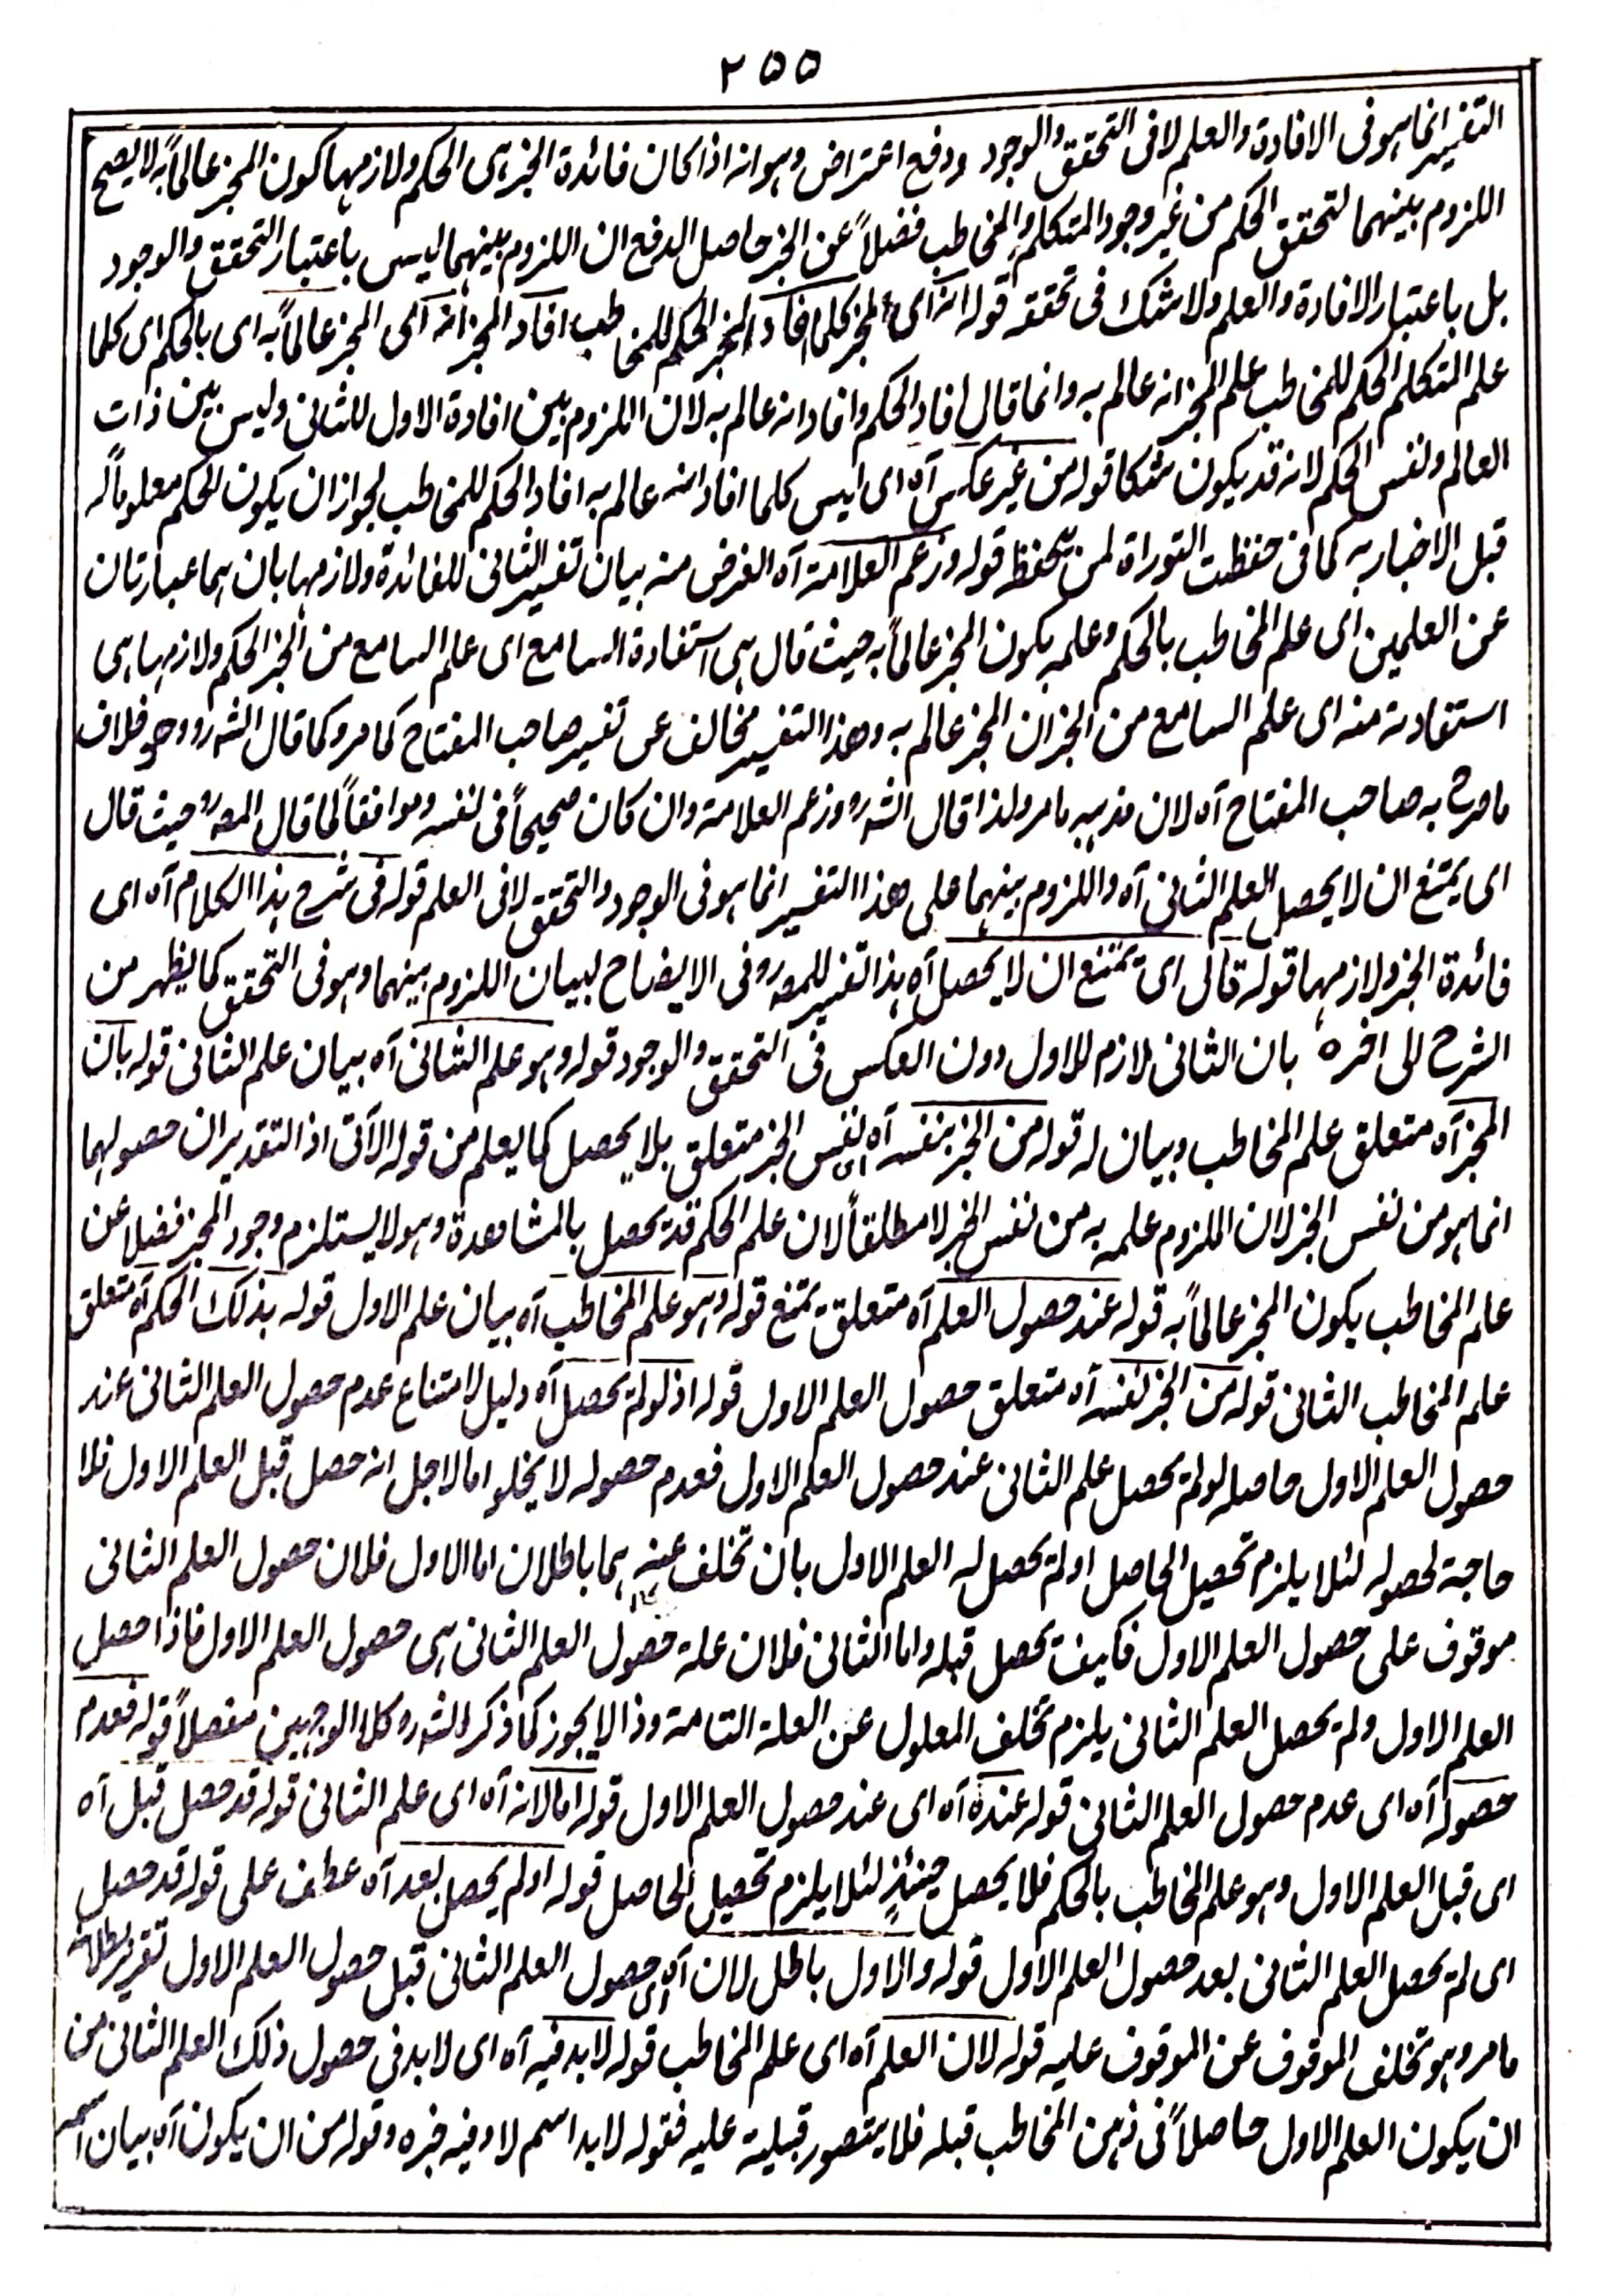 ٢٥٥
التفسير انما هو فى الافادة والعلم لا فى التحقق والوجود ودفع اعتراض وهو انه اذا كان فائدة الخبر هى الحكم ولازمها كون المخبر عالماً به لا يصح
اللزوم بينهما لتحقق الحكم من غير وجود المتكلم والمخاطب فضلاً عن الخبر حاصل الدفع ان اللزوم بينهما ليس باعتبار التحقق والوجود
بل باعتبار الافادة والعلم ولا شك فى تحققه قوله انه اى المخبر كلما افاد المخبر الحكم للمخاطب افاد المخبر انه اى المخبر عالماً به اى بالحكم اى كلما
علم المتكلم الحكم للمخاطب علم المخبر انه عالم به وانما قال افاد الحكم وافاد انه عالم به لان اللزوم بين افادة الاول للثانى وليس بين ذات
العالم ونفس الحكم لانه قد يكون شكا قوله من غير عكس آه اى ليس كلما افاد انه عالم به افاد الحكم للمخاطب لجواز ان يكون الحكم معلوماً له
قبل الاخبار به كما فى حفظت التوراة لمن يحفظه قوله وزعم العلامة آه الغرض منه بيان تفسير الثانى للفائدة ولازمها بان هما عبارتان
عن العلمين اى علم المخاطب بالحكم وعلمه بكون المخبر عالماً به حيث قال هى استفادة السامع اى علم السامع من الخبر الحكم ولازمها هى
استفادته منه اى علم السامع من الخبر ان المخبر عالم به وهذا التفسير مخالف عن تفسير صاحب المفتاح كما مر وكما قال الشه رو وهو خلاف
ما صرح به صاحب المفتاح آه لان مذهبه ما مر ولذا قال الشه رو وزعم العلامة وان كان صحيحاً فى نفسه وموافقاً لما قال المصه رو حيث قال
اى يمتنع ان لا يحصل العلم الثانى آه واللزوم بينهما على هذا التفسير انما هو فى الوجود والتحقق لا فى العلم قوله فى شرح هذا الكلام آه اى
فائدة الخبر ولازمها قوله قال اى يمتنع ان لا يحصل آه هذا تفسير للمصه رو فى الايضاح لبيان اللزوم بينهما وهو فى التحقق كما يظهر من
الشرح الى اخره بان الثانى لازم للاول دون العكس فى التحقق والوجود قوله وهو علم الثانى آه بيان علم الثانى قوله بان
المخبر آه متعلق علم المخاطب وبيان له قوله من الخبر بنفسه آه اى نفس الخبر متعلق بلا يحصل كما يعلم من قوله الآتى اذ التقدير ان حصولهما
انما هو من نفس الخبر لان اللزوم علمه به من نفس الخبر لا مطلقاً لان علم الحكم قد يحصل بالمشاهدة وهو لا يستلزم وجود المخبر فضلا عن
علم المخاطب بكون المخبر عالماً به قوله عند حصول العلم آه متعلق يمتنع قوله وهو علم المخاطب آه بيان علم الاول قوله بذلك الحكم آه متعلق
علم المخاطب الثانى قوله من الخبر نفسه آه متعلق حصول العلم الاول قوله اذ لو لم يحصل آه دليل لامتناع عدم حصول العلم الثانى عند
حصول العلم الاول حاصله لو لم يحصل علم الثانى عند حصول العلم الاول فعدم حصوله لا يخلو اما لاجل انه حصل قبل العلم الاول فلا
حاجة لحصوله لئلا يلزم تحصيل الحاصل او لم يحصل له العلم الاول بان تخلف عنه هما باطلان اما الاول فلان حصول العلم الثانى
موقوف على حصول العلم الاول فكيف يحصل قبله واما الثانى فلان علة حصول العلم الثانى هى حصول العلم الاول فاذا حصل
العلم الاول ولم يحصل العلم الثانى يلزم تخلف المعلول عن العلة التامة وذا لا يجوز كما ذكر الشه رو كلا الوجهين مفصلاً قوله فعدم
حصوله آه اى عدم حصول العلم الثانى قوله عنده آه اى عند حصول العلم الاول قوله اما لانه آه اى علم الثانى قوله قد حصل قبل آه
اى قبل العلم الاول وهو علم المخاطب بالحكم فلا يحصل حينئذٍ لئلا يلزم تحصيل الحاصل قوله او لم يحصل بعد آه عطف على قوله قد حصل
اى لم يحصل العلم الثانى بعد حصول العلم الاول قوله والاول باطل لان آه اى حصول العلم الثانى قبل حصول العلم الاول تقرير بطلانه
ما مر وهو تخلف الموقوف عن الموقوف عليه قوله لان العلم آه اى علم المخاطب قوله لا بد فيه آه اى لا بد فى حصول ذلك العلم الثانى من
ان يكون العلم الاول حاصلاً فى ذهن المخاطب قبله فلا يتصور قبلية عليه فقوله لا بد اسم لا وفيه خبره وقوله من ان يكون آه بيان اسم